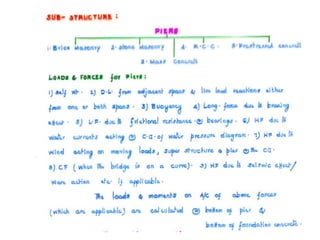 SUB-STRUCTURE:
PIERS
1. Brick Masonry 2. Stone Masonry 4. R.C.C. 5. Prestressed concrete
3. Mass Concrete
LOADS & FORCES for Piers:
1) Self wt. 2) D.L from adjacent spans & live load reactions either
from one or both spans. 3) Buoyancy 4) Long. force due to breaking
effect. 5) LF. due to frictional resistance @ bearings. 6) HF due to
water currents acting @ C.G. of water pressure diagram. 7) HF due to
wind acting on moving loads, super structure & pier @ the CG.
8) CF (when the bridge is on a curve). 9) HF due to seismic effect/
wave action etc. if applicable.
The loads & moments on A/C of above forces
(which are applicable) are calculated @ bottom of pier &
bottom of foundation concrete.